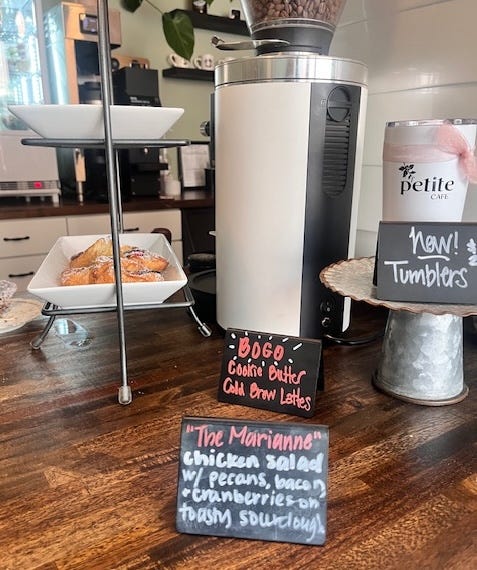 petite
CAFE
New!
Tumblers
BOGO
Cookie Butter
Cold Brew Lattes
"The Marianne"
chicken salad
w/ pecans, bacon,
+ cranberries on
toasty sourdough